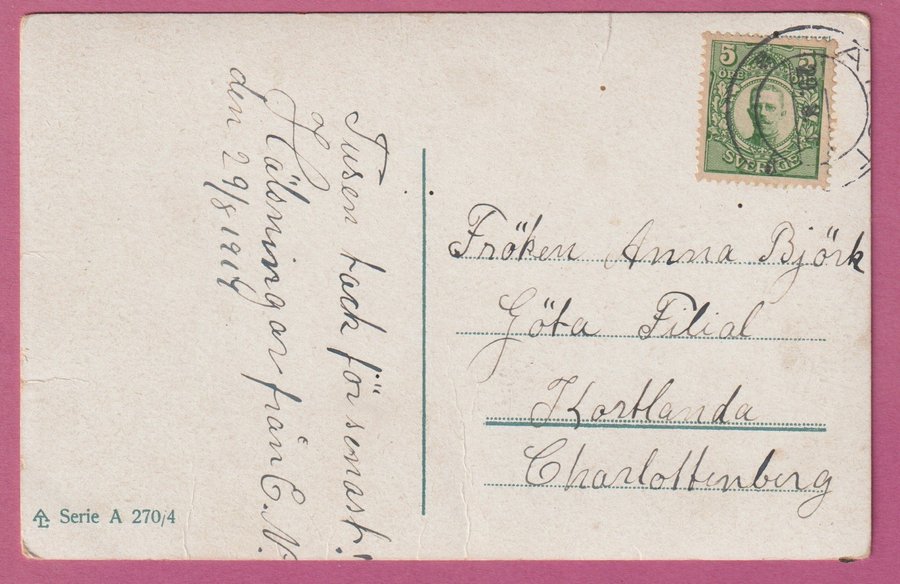 Tusen tack för senast!
Hälsningar från E. N.
den 29/8 1914
Fröken Anna Björk
Göta Filial
Kortlanda
Charlottenberg
5 5
ÖRE
SVERIGE
Serie A 270/4